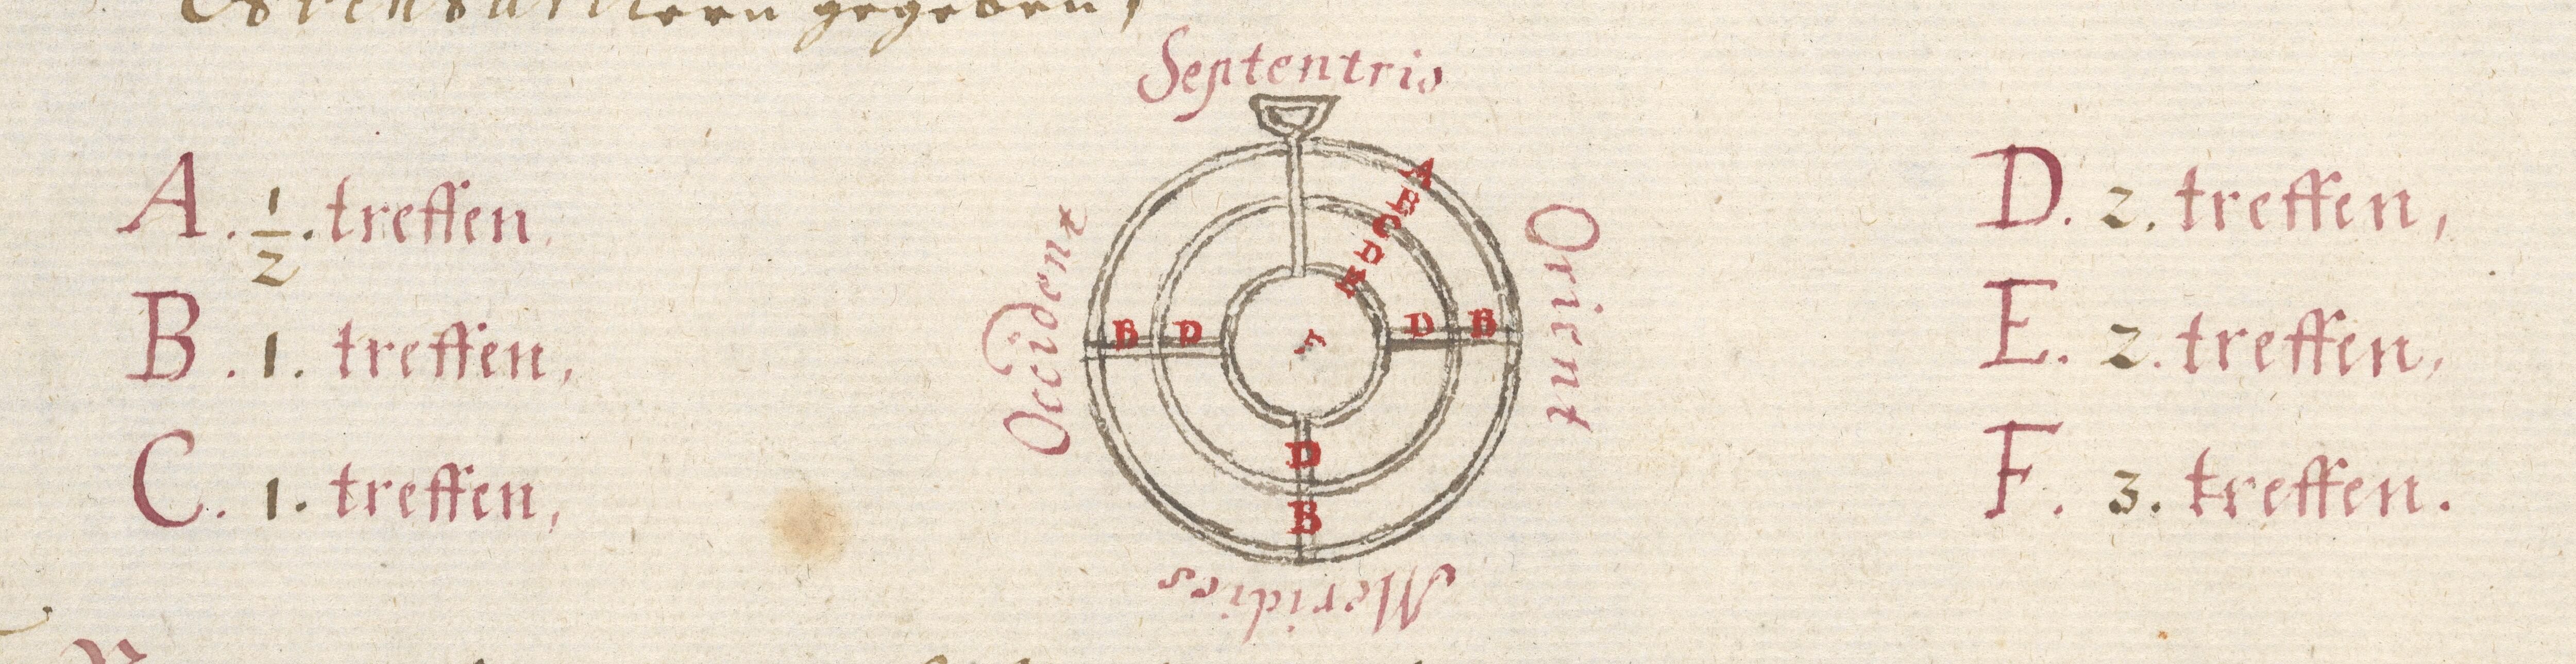 gegeben,
Septentrio
A. 1/2. treffen,
B. 1. treffen,
C. 1. treffen,
Occident
A
B
C
D
E
B D
F
D B
D
B
Orient
Meridies
D. 2. treffen,
E. 2. treffen,
F. 3. treffen.